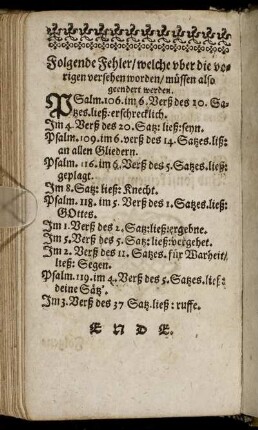 Folgende Fehler/ welche vber die vo-
rigen versehen worden/ müssen also
geendert werden.
PSalm. 106. im 6. Verß des 10. Sa-
tzes. ließ: erschrecklich.
Im 4. Verß des 20. Satz: ließ: seyn.
Psalm. 109. im 6. verß des 14. Satzes. ließ:
an allen Gliedern.
Psalm. 116. im 6. Verß des 5. Satzes. ließ:
geplagt.
Im 8. Satz: ließ: Knecht.
Psalm. 118. im 5. Verß des 1. Satzes. ließ:
GOttes.
Im 1. Verß des 2. Satz: ließ: ergebne.
Im 5. Verß des 5. Satz: ließ: vergehet.
Im 2. Verß des 11. Satzes. für Warheit/
ließ: Segen.
Psalm. 119. im 4. Verß des 5. Satzes. ließ:
deine Sätz'.
Im 3. Verß des 37 Satz. ließ: ruffe.
ENDE.